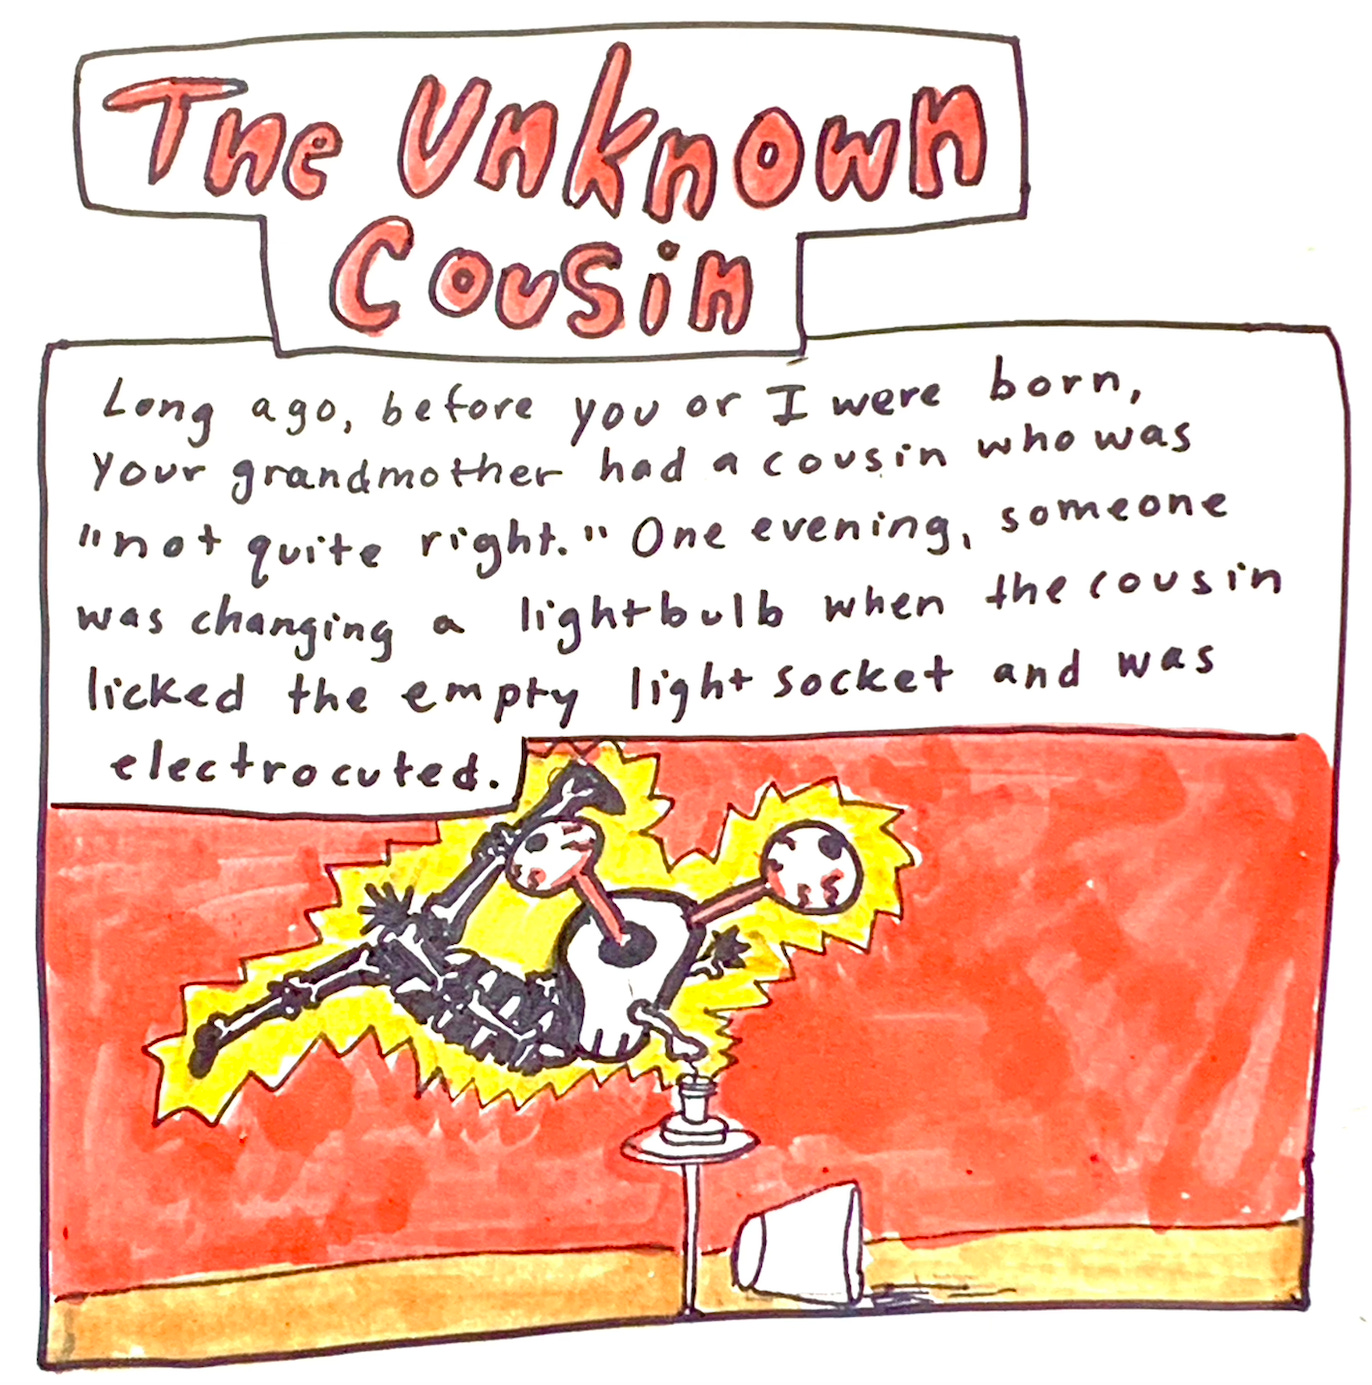 The Unknown
Cousin
Long ago, before you or I were born,
your grandmother had a cousin who was
"not quite right." One evening, someone
was changing a lightbulb when the cousin
licked the empty light socket and was
electrocuted.